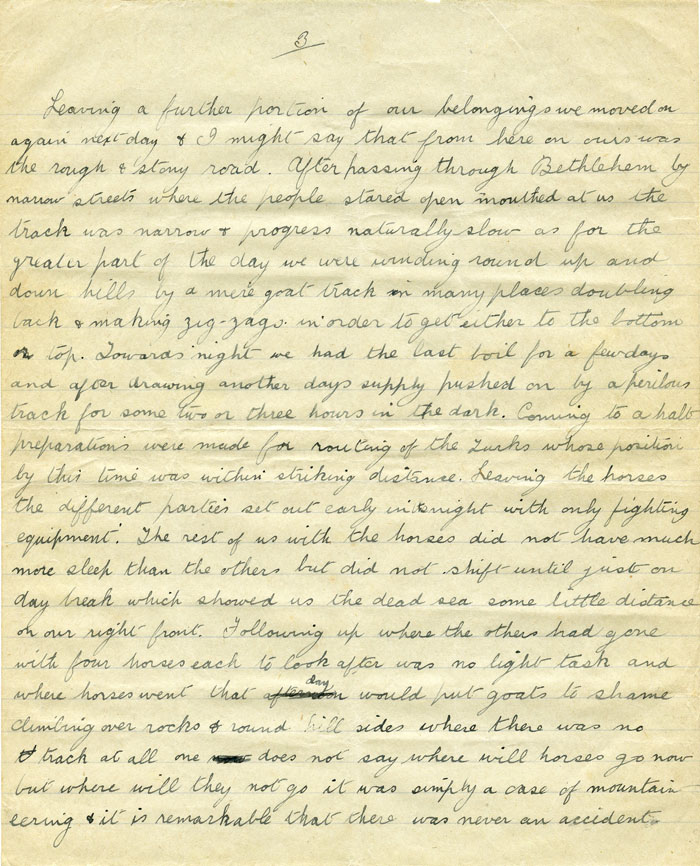 3
Leaving a further portion of our belongings we moved on
again next day & I might say that from here on ours was
the rough & stony road. After passing through Bethlehem by
narrow streets where the people stared open mouthed at us the
track was narrow & progress naturally slow as for the
greater part of the day we were winding round up and
down hills by a mere goat track in many places doubling
back & making zig-zags in order to get either to the bottom
or top. Towards night we had the last boil for a few days
and after drawing another days supply pushed on by a perilous
track for some two or three hours in the dark. Coming to a halt
preparations were made for routing of the Turks whose position
by this time was within striking distance. Leaving the horses
the different parties set out early in the night with only fighting
equipment. The rest of us with the horses did not have much
more sleep than the others but did not shift until just on
day break which showed us the dead sea some little distance
on our right front. Following up where the others had gone
with four horses each to look after was no light task and
where horses went that afternoon day would put goats to shame
climbing over rocks & round hill sides where there was no
track at all one does not say where will horses go now
but where will they not go it was simply a case of mountain-
eering & it is remarkable that there was never an accident.